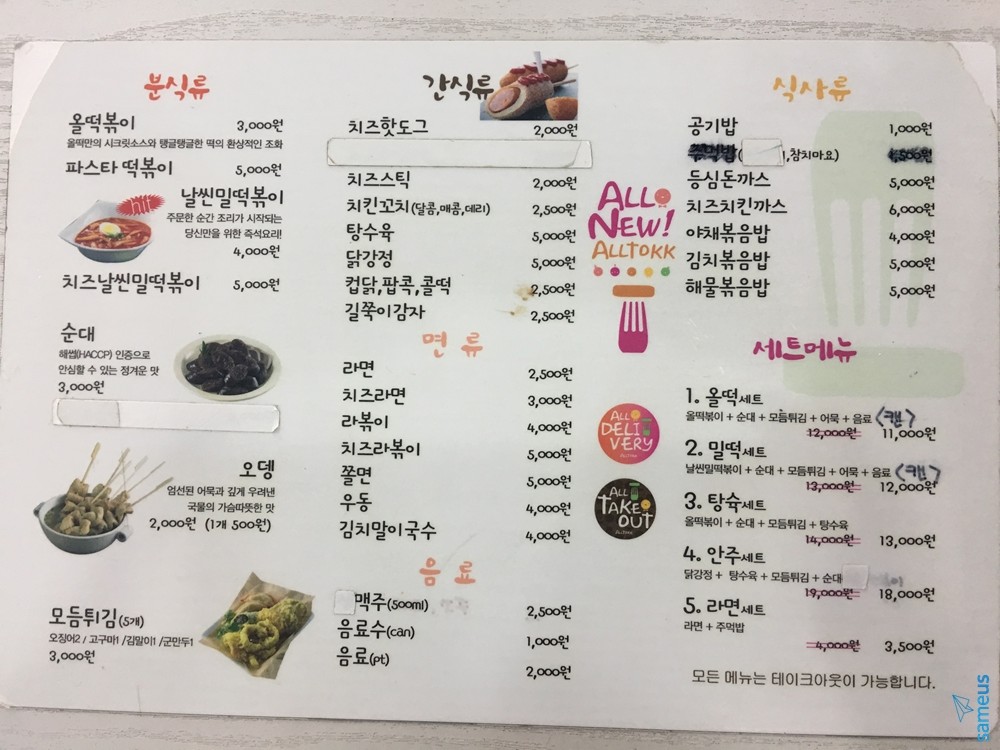 분식류
올떡볶이 3,000원
올떡만의 시크릿소스와 탱글탱글한 떡의 환상적인 조화
파스타 떡볶이 5,000원
날씬밀떡볶이
주문한 순간 조리가 시작되는
당신만을 위한 즉석요리!
4,000원
치즈날씬밀떡볶이 5,000원
순대
해썹(HACCP) 인증으로
안심할 수 있는 정겨운 맛
3,000원
오뎅
엄선된 어묵과 깊게 우려낸
국물의 가슴따뜻한 맛
2,000원 (1개 500원)
모듬튀김(5개)
오징어2 / 고구마1 /김말이1 /군만두1
3,000원
간식류
치즈핫도그 2,000원
치즈스틱 2,000원
치킨꼬치(달콤,매콤,데리) 2,500원
탕수육 5,000원
닭강정 5,000원
컵닭,팝콕,콜떡 2,500원
길쭉이감자 2,500원
면류
라면 2,500원
치즈라면 3,000원
라볶이 4,000원
치즈라볶이 5,000원
쫄면 5,000원
우동 4,000원
김치말이국수 4,000원
음료
맥주(500ml) 2,500원
음료수(can) 1,000원
음료(pt) 2,000원
ALL
NEW!
ALLTOKK
ALL
DELI
VERY
ALL
TAKE
OUT
식사류
공기밥 1,000원
주먹밥( ,참치마요) 1,500원
등심돈까스 5,000원
치즈치킨까스 6,000원
야채볶음밥 4,000원
김치볶음밥 5,000원
해물볶음밥 5,000원
세트메뉴
1. 올떡세트
올떡볶이 + 순대 + 모듬튀김 + 어묵 + 음료 <캔>
12,000원 11,000원
2. 밀떡세트
날씬밀떡볶이 + 순대 + 모듬튀김 + 어묵 + 음료 <캔>
13,000원 12,000원
3. 탕슉세트
올떡볶이 + 순대 + 모듬튀김 + 탕수육
14,000원 13,000원
4. 안주세트
닭강정 + 탕수육 + 모듬튀김 + 순대
19,000원 18,000원
5. 라면세트
라면 + 주먹밥
4,000원 3,500원
모든 메뉴는 테이크아웃이 가능합니다.
sameus